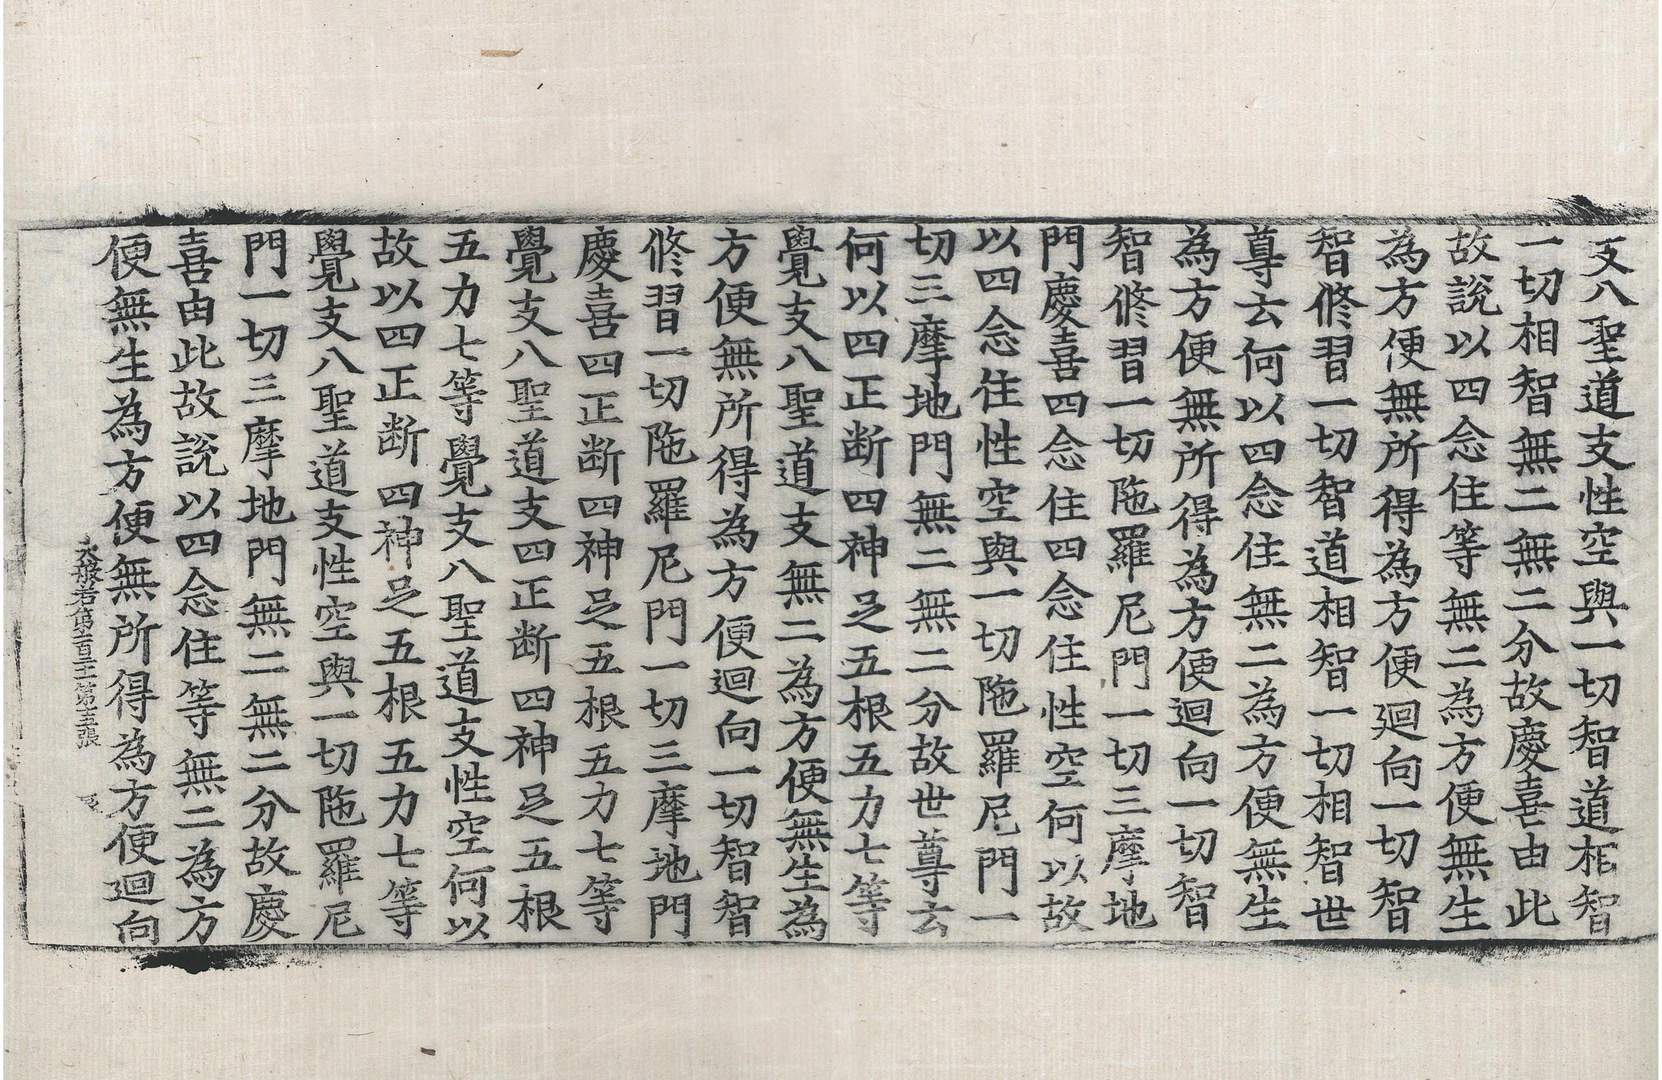 支八聖道支性空與一切智道相智
一切相智無二無二分故慶喜由此
故說以四念住等無二為方便無生
為方便無所得為方便迴向一切智
智修習一切智道相智一切相智世
尊云何以四念住無二為方便無生
為方便無所得為方便迴向一切智
智修習一切陁羅尼門一切三摩地
門慶喜四念住四念住性空何以故
以四念住性空與一切陁羅尼門一
切三摩地門無二無二分故世尊云
何以四正断四神足五根五力七等
覺支八聖道支無二為方便無生為
方便無所得為方便迴向一切智智
修習一切陁羅尼門一切三摩地門
慶喜四正断四神足五根五力七等
覺支八聖道支四正断四神足五根
五力七等覺支八聖道支性空何以
故以四正断四神足五根五力七等
覺支八聖道支性空與一切陁羅尼
門一切三摩地門無二無二分故慶
喜由此故說以四念住等無二為方
便無生為方便無所得為方便迴向
大般若第一百二十 第十五張